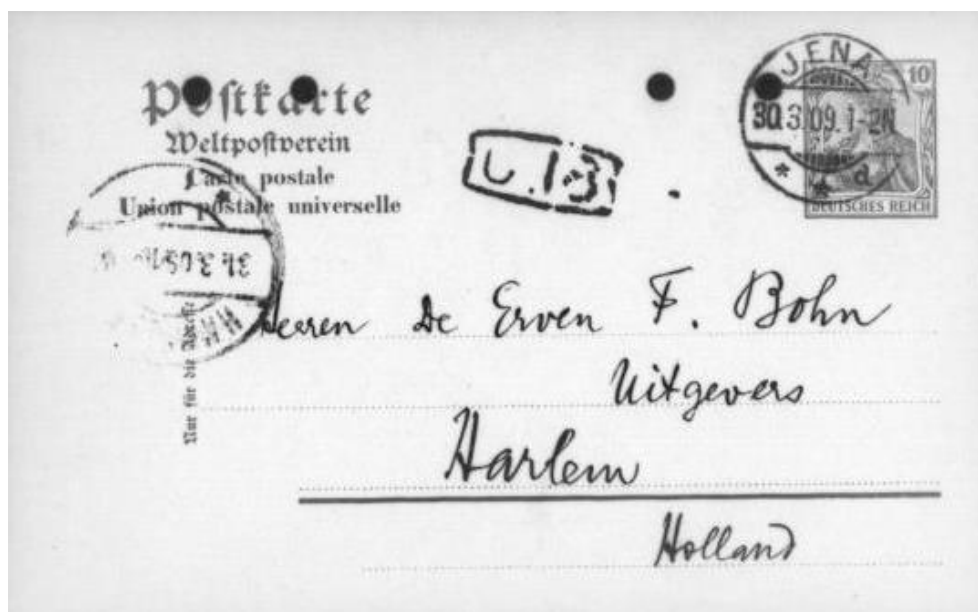 Postkarte
Weltpostverein
Carte postale
Union postale universelle
JENA
30.3.09.1-2N
* * d
10
DEUTSCHES REICH
31.3.09
Nur für die Adresse
Heeren De Erven F. Bohn
Uitgevers
Harlem
Holland